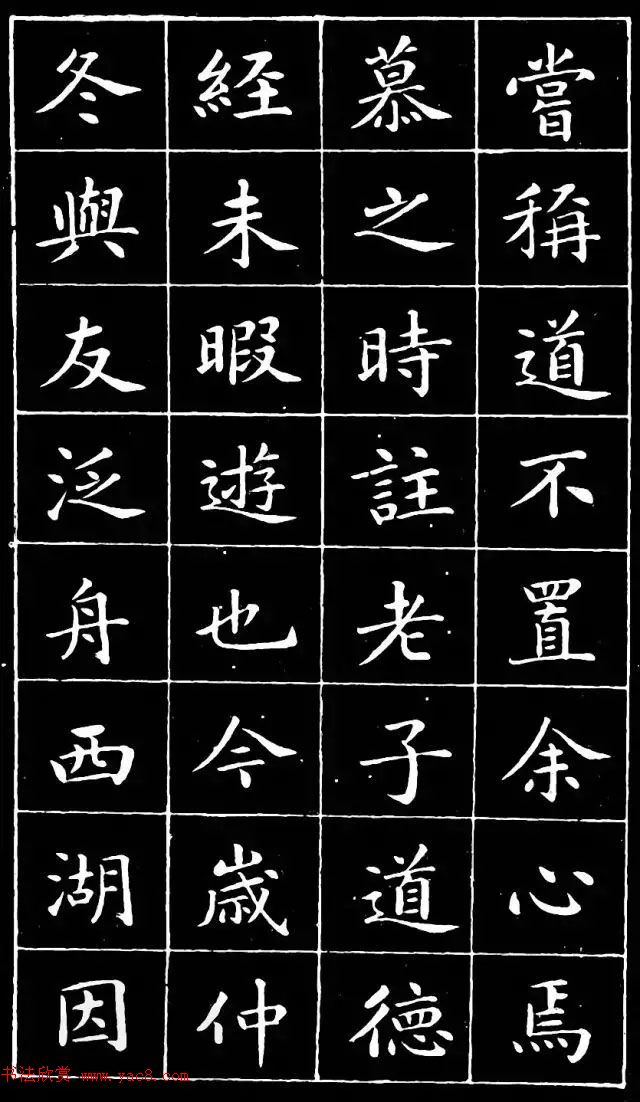 嘗稱道不置余心焉
慕之時註老子道德
經未暇遊也今歲仲
冬與友泛舟西湖因
书法欣赏 www.yac8.com